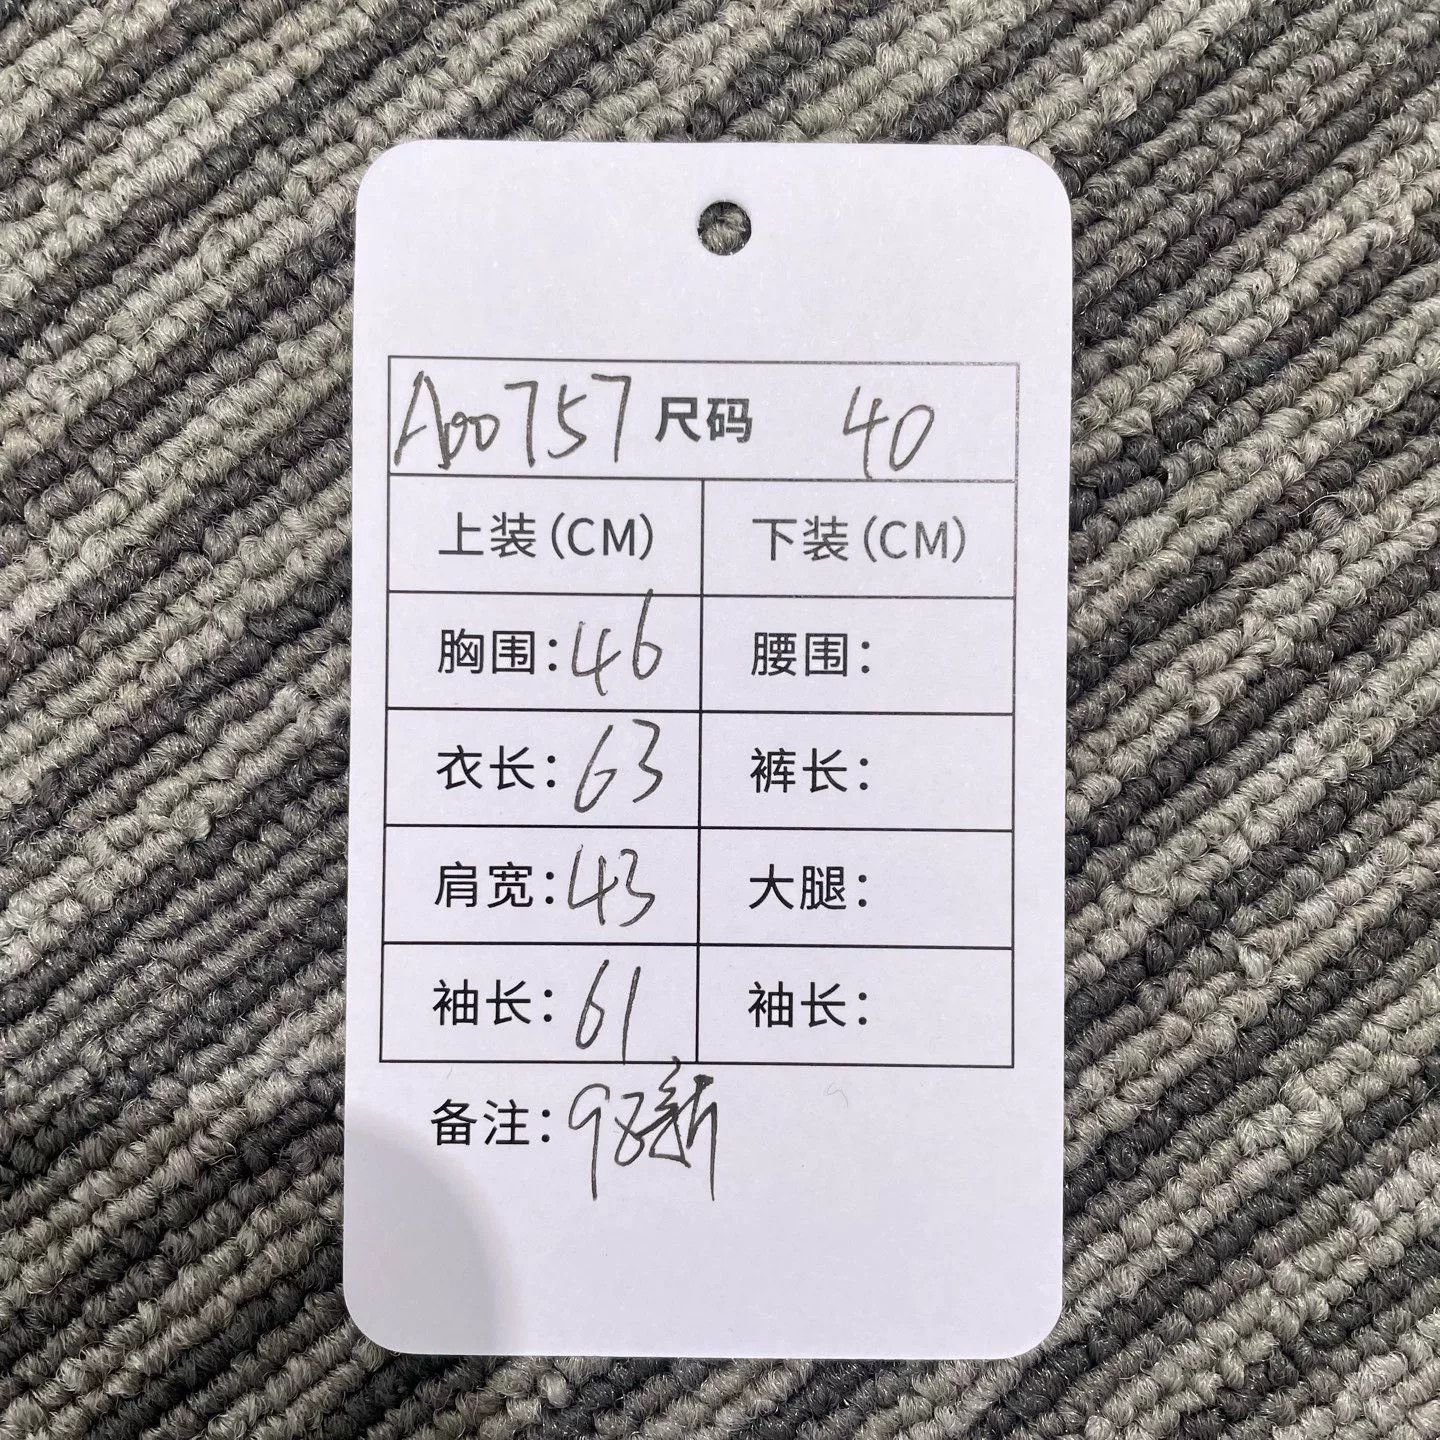 A00757 尺码 40
上装(CM) 下装(CM)
胸围:46 腰围:
衣长:63 裤长:
肩宽:43 大腿:
袖长:61 袖长:
备注:98新